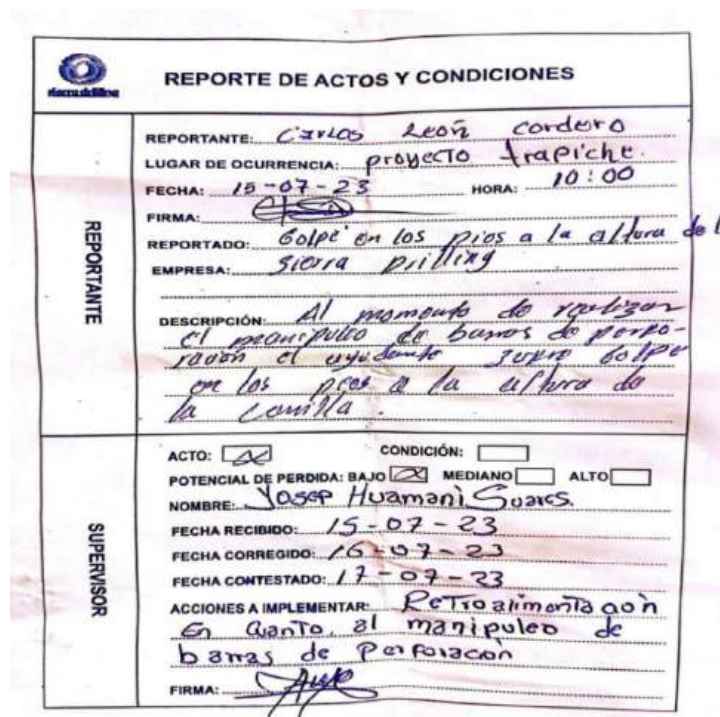 REPORTE DE ACTOS Y CONDICIONES
REPORTANTE
REPORTANTE: Carlos León Cordero
LUGAR DE OCURRENCIA: proyecto trapiche.
FECHA: 15-07-23 HORA: 10:00
FIRMA:
REPORTADO: Golpe en los pies a la altura de l
EMPRESA: Sierra Drilling
DESCRIPCIÓN: Al momento de realizar
el manipuleo de barras de perfo-
ración el ayudante sufrio Golpe
en los pies a la altura de
la canilla.
SUPERVISOR
ACTO: CONDICIÓN:
POTENCIAL DE PERDIDA: BAJO MEDIANO ALTO
NOMBRE: Yosep Huamaní Suares.
FECHA RECIBIDO: 15-07-23
FECHA CORREGIDO: 16-07-23
FECHA CONTESTADO: 17-07-23
ACCIONES A IMPLEMENTAR: Retroalimentación
En cuanto, al manipuleo de
barras de Perforación
FIRMA: